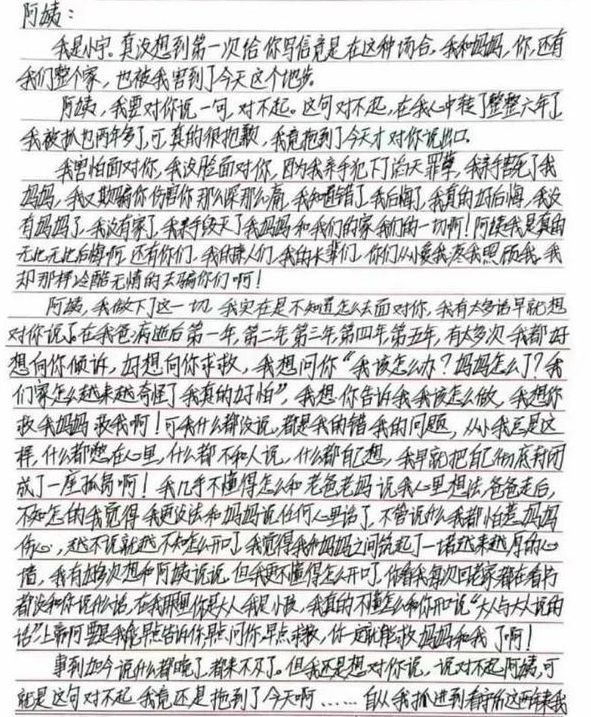 阿姨：
我是小宇。真没想到第一次给你写信竟是在这种场合。我和妈妈，你，还有
我们整个家，也被我害到了今天这个地步。
阿姨，我要对你说一句，对不起。这句对不起，在我心中转了整整六年了
我被抓也两年多了，可真的很抱歉，我竟拖到了今天才对你说出口。
我害怕面对你，我没脸面对你，因为我亲手犯下了滔天罪孽，我亲手害死了我
妈妈，我又欺骗你伤害你那么深那么痛，我知道错了我后悔了，我真的好后悔，我没
有妈妈了，我没有家了，我亲手毁灭了我妈妈和我们的家我们的一切啊！阿姨我是真的
无比无比后悔啊，还有你们，我的亲人们，我的长辈们，你们从小爱我疼我照顾我，我
却那样冷酷无情的去骗你们啊！
阿姨，我做下了这一切，我实在是不知道怎么去面对你，我有太多话早就想
对你说了。在我爸病逝后第一年，第二年，第三年，第四年，第五年，有太多次我都好
想向你倾诉，好想向你求救，我想问你“我该怎么办？妈妈怎么了？我
们家怎么越来越奇怪了我真的好怕”，我想你告诉我我该怎么做，我想你
救我妈妈救我啊！可我什么都没说，都是我的错我的问题，从小我总是这
样，什么都憋在心里，什么都不和人说，什么都自己想，我早就把自己彻底封闭
成了一座孤岛啊！我几乎不懂得怎么和老爸老妈说我心里想法，爸爸走后，
不知怎的我觉得我更没法和妈妈说任何心里话了，不管说什么我都怕惹妈妈
伤心，越不说就越不知怎么开口了，我觉得我和妈妈之间筑起了一堵越来越厚的心
墙，我有好多次想和阿姨说说，但我更不懂得怎么开口了，你看我每次回老家都在看书
都没和你说什么话，在我那里你是大人我是小孩，我真的不懂怎么和你开口说“大人与大人说的
话”上帝啊要是我能早点告诉你早点问你，早点求救，你一定就能救妈妈和我了啊！
事到如今说什么都晚了，都来不及了。但我还是想对你说，说对不起阿姨，可
就是这句对不起，我竟还是拖到了今天啊……自从我抓进到看守所这两年来我